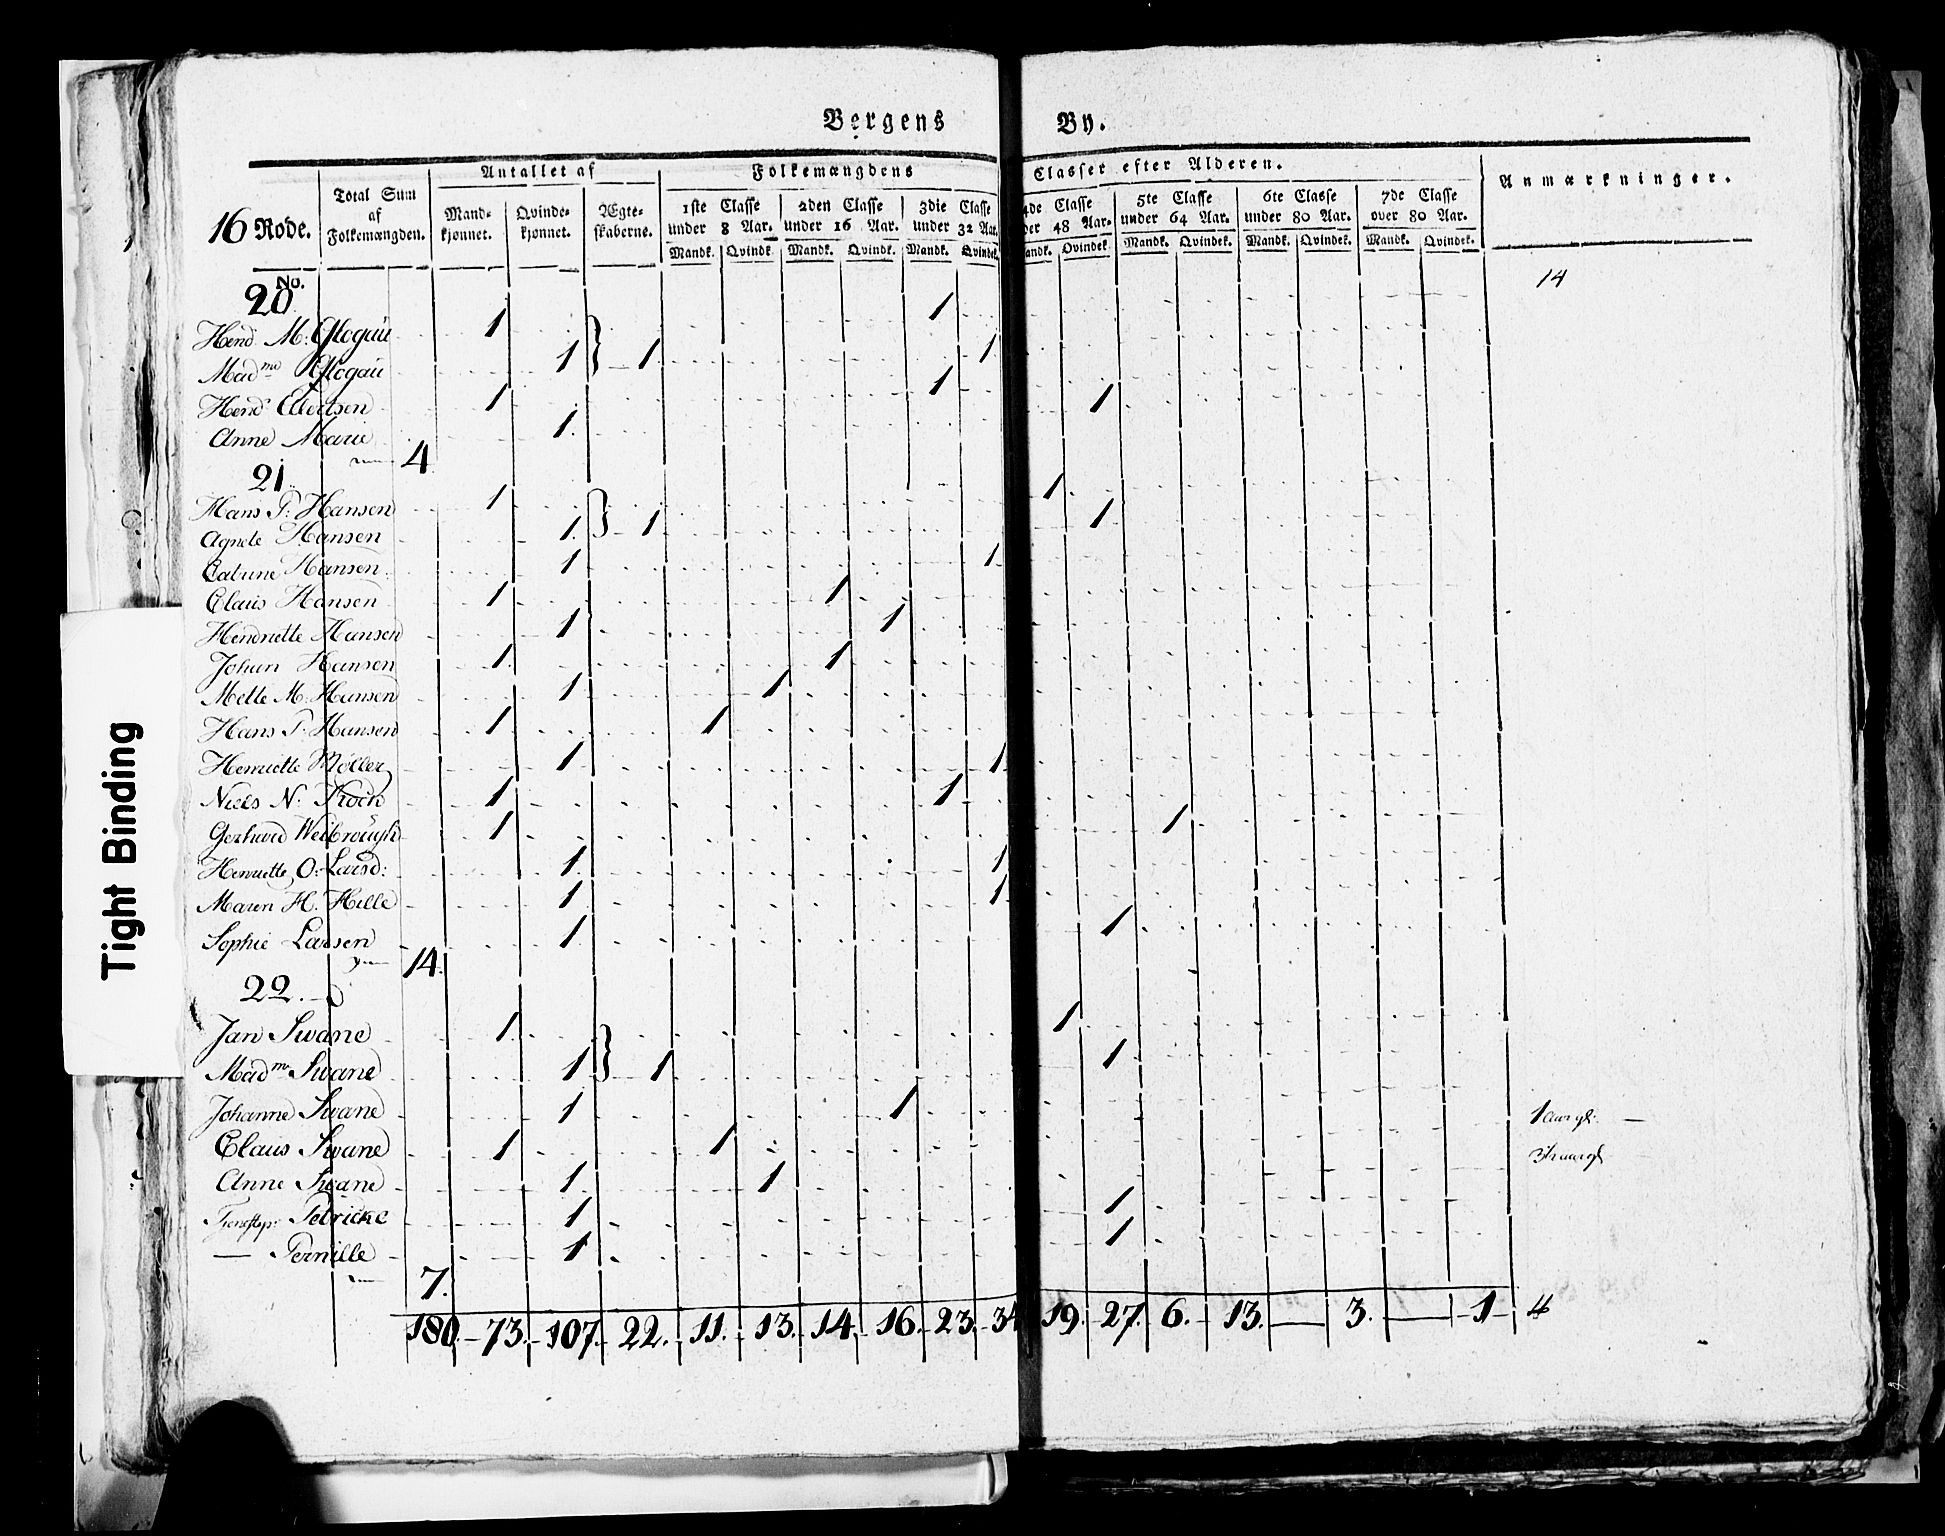 Bergens By.
16 Rode.
Total Sum af Folkemængden.
Antallet af
Mand-kjønnet. Qvinde-kjønnet. Ægte-skaberne.
Folkemængdens Classer efter Alderen.
1ste Classe under 8 Aar. 2den Classe under 16 Aar. 3die Classe under 32 Aar. 4de Classe der 48 Aar. 5te Classe under 64 Aar. 6te Classe under 80 Aar. 7de Classe over 80 Aar.
Mandk. Qvindk. Mandk. Qvindk. Mandk. Qvindek. andk. Qvindek. Mandk. Qvindek. Mandk. Qvindek. Mandk. Qvindek.
Anmærkninger.
No.
20 14
Hend. M. Glogau 1 1
Madme Glogau 1 1 1
Hend. Ellertsen 1 1
Anne Marie 1 1
4
21
Hans P: Hansen 1 1
Agnete Hansen 1 1 1
Catrine Hansen 1 1
Claus Hansen 1 1
Hendriette Hansen 1 1
Johan Hansen 1 1
Mette M. Hansen 1 1
Hans P: Hansen 1 1
Henriette Møller 1 1
Niels N: Kroen 1 1
Gerhard 1 1
Henriette O: Larsd: 1 1
Maren H. Hille 1 1
Sophie Larsen 1 1
14.
22.
Jan Swane 1 1
Madm Swane 1 1 1
Johanne Swane 1 1
Claus Swane 1 1
Anne Swane 1 1
Petricke 1 1
— Pernille 1 1
7.
180. 73. 107. 22. 11. 13. 14. 16. 23. 34 19. 27. 6. 13. — 3. — 1 4
Tight Binding